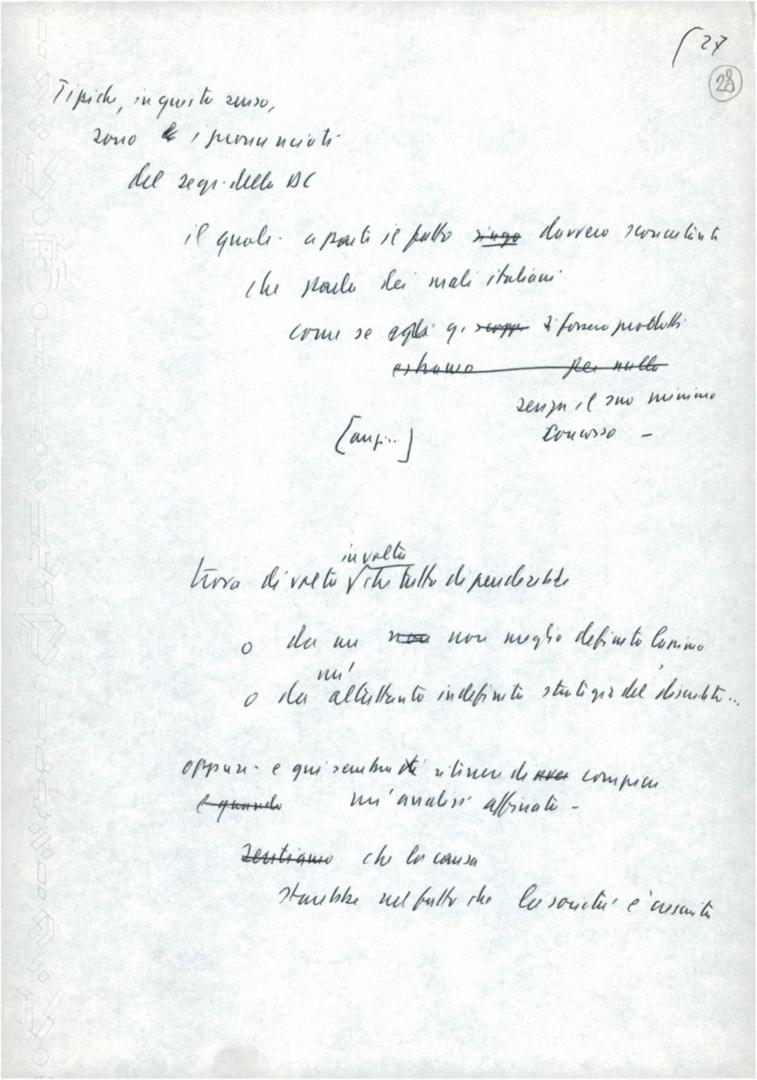 27
28
Tipiche, in questo senso,
sono le i pronunciati
del segr. della DC
il quale - a parte il fatto davvero sconcertante
che parla dei mali italiani
come se egli si fossero prodotti
estraneo per nulla
senza il suo minimo
concorso -
[anzi..]
in volta
trova di volta che tutto dipenderebbe
o da un non non meglio definito lassismo
un'
o da altrettanto indefinita strategia del discredito...
oppure - e qui sembra ritenere di compiere
e quando un'analisi affinata -
sentiamo che la causa
starebbe nel fatto che la società è cresciuta